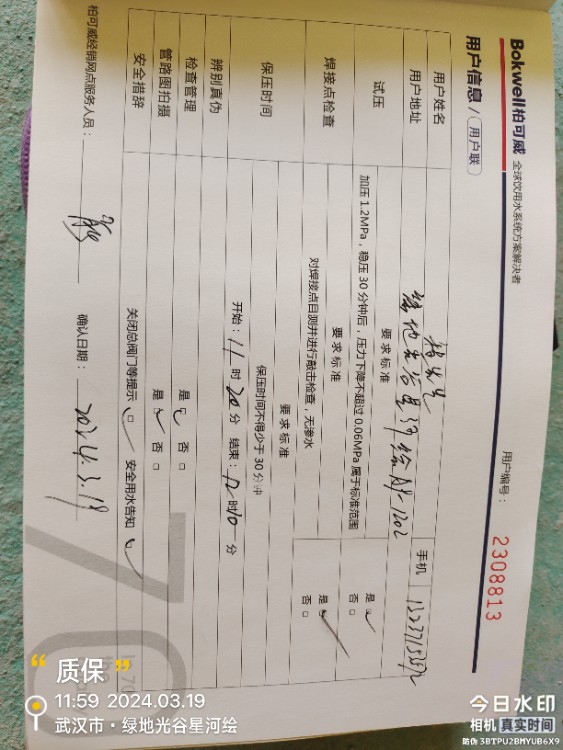 Bokwell柏可威 全球饮用水系统方案解决者
用户信息 / 用户联
用户编号： 2308813
用户姓名
用户地址 绿地光谷星河绘 手机
试压 要求标准 是 否
加压 1.2MPa，稳压 30 分钟后，压力下降不超过 0.06MPa 属于标准范围
焊接点检查 要求标准 是 否
对焊接点目测并进行敲击检查，无渗水
保压时间 要求标准
保压时间不得少于 30 分钟
开始：11 时 20 分 结束：12 时 10 分
辨别真伪 是 否
检查管理
管路图拍摄 是 否
安全措辞 关闭总阀门等提示 安全用水告知
柏可威经销网点服务人员： 确认日期： 2024.3.19
“质保”
11:59 2024.03.19
武汉市·绿地光谷星河绘
今日水印
相机 真实时间
防伪 3BTPU2BMYUB6X9